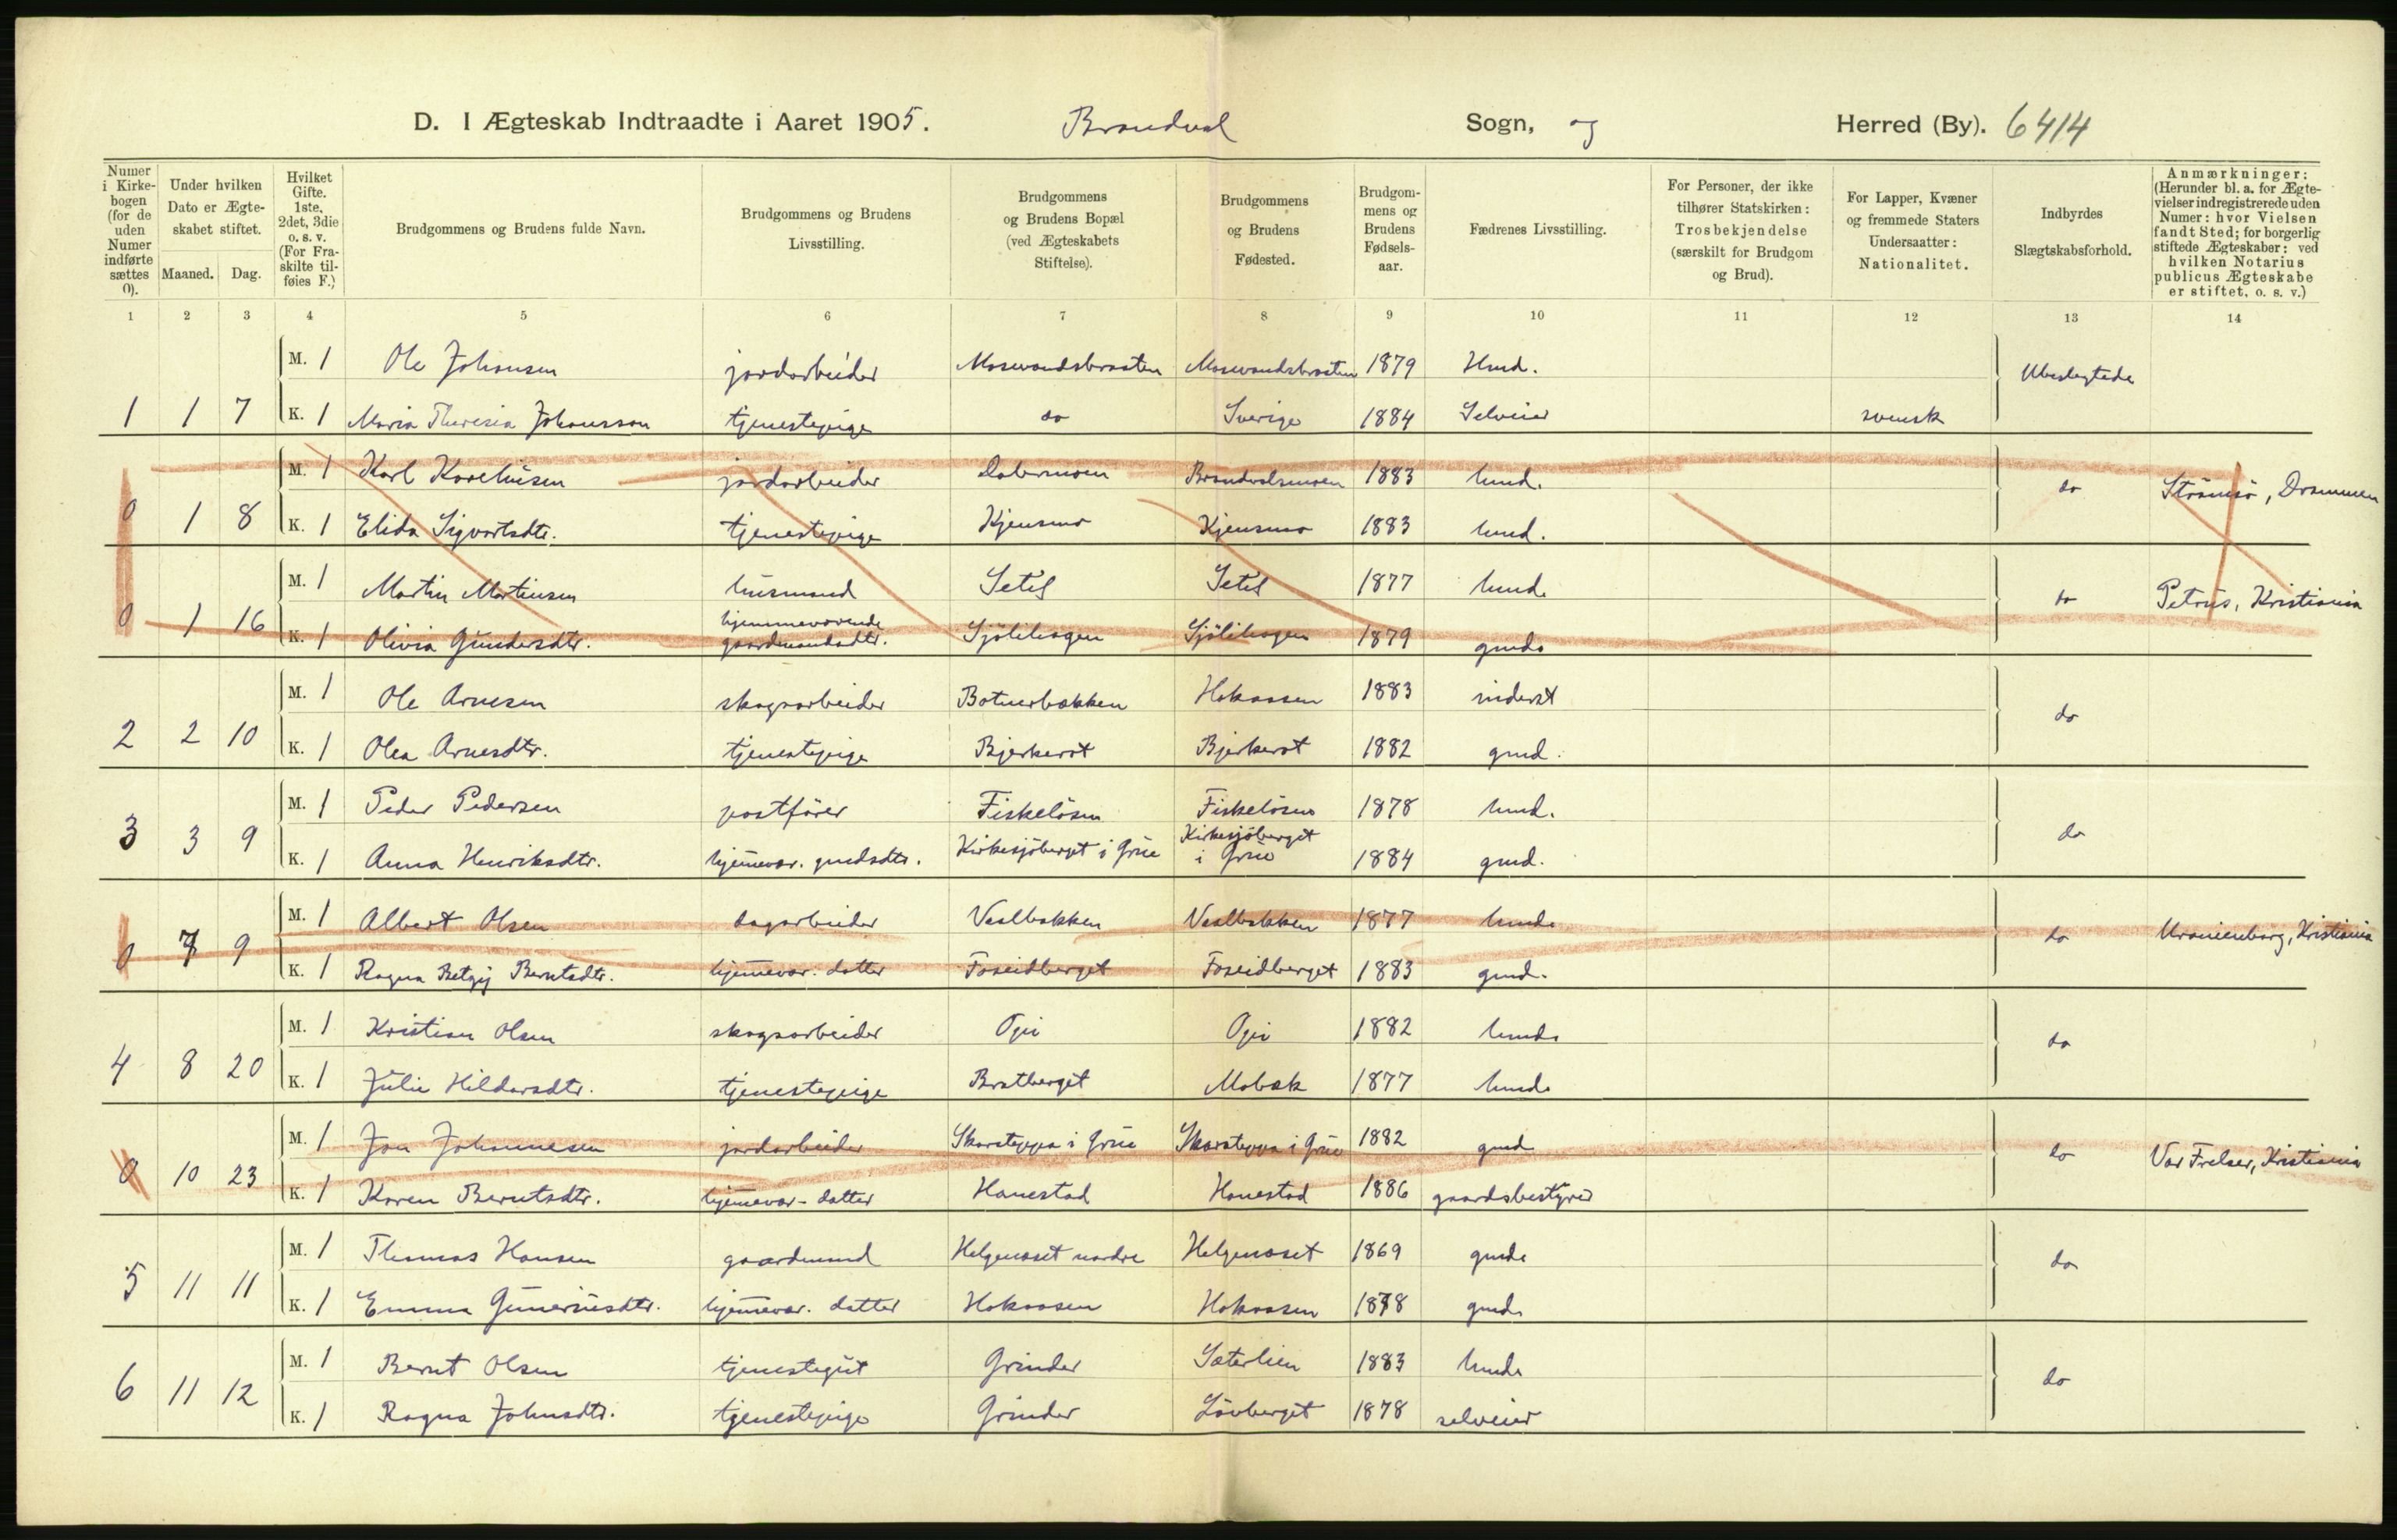 D. I Ægteskab Indtraadte i Aaret 1905. Brandval Sogn, og Herred (By). 6414
Numer i Kirke-bogen (for de uden Numer indførte sættes 0).
Under hvilken Dato er Ægte-skabet stiftet.
Maaned. Dag.
Hvilket Gifte. 1ste, 2det, 3die o. s. v. (For Fra-skilte til-føies F.)
Brudgommens og Brudens fulde Navn.
Brudgommens og Brudens Livsstilling.
Brudgommens og Brudens Bopæl (ved Ægteskabets Stiftelse).
Brudgommens og Brudens Fødested.
Brudgom-mens og Brudens Fødsels-aar.
Fædrenes Livsstilling.
For Personer, der ikke tilhører Statskirken: Trosbekjendelse (særskilt for Brudgom og Brud).
For Lapper, Kvæner og fremmede Staters Undersaatter: Nationalitet.
Indbyrdes Slægtskabsforhold.
Anmærkninger: (Herunder bl. a. for Ægte-vielser indregistrerede uden Numer: hvor Vielsen fandt Sted; for borgerlig stiftede Ægteskaber: ved hvilken Notarius publicus Ægteskabe er stiftet, o. s. v.)
1 2 3 4 5 6 7 8 9 10 11 12 13 14
M. 1 Ole Johansen jordarbeider Masevandsbraaten Masevandsbraaten 1879 Hmd. Ubeslegtede
1 1 7 K. 1 Maria Theresia Johansson tjenestepige do Sverige 1884 Selveier svensk
M. 1 Karl Kareliusen jordarbeider Dabermoen Brandvalsmoen 1883 hmd. do Strömsö, Drammen
0 1 8 K. 1 Elida Sigvartsdtr. tjenestepige Kjensmo Kjensmo 1883 hmd.
M. 1 Martin Martinsen husmand Seteg Seteg 1877 hmd. do Petrus, Kristiania
0 1 16 K. 1 Olivia Gundersdtr. hjemmeværende gaardmandsdtr. Sjölihagen Sjölihagen 1879 gmd.
M. 1 Ole Arnesen skogsarbeider Botnerbakken Hokaasen 1883 inderst do
2 2 10 K. 1 Olea Arnesdtr. tjenestepige Bjerkerot Bjerkerot 1882 gmd.
M. 1 Peder Pedersen postförer Fiskelösen Fiskelösen 1878 hmd. do
3 3 9 K. 1 Anna Henriksdtr. hjemevær. gmdsdtr. Kirkesjöberget i Grue Kirkesjöberget i Grue 1884 gmd.
M. 1 Albert Olsen dagarbeider Vealbakken Vealbakken 1877 hmd. do Uranienborg, Kristiania
0 7 9 K. 1 Ragna Betzy Berntsdtr. hjemevær. datter Foseidberget Foseidberget 1883 gmd.
M. 1 Kristian Olsen skogsarbeider Opi Opi 1882 hmd. do
4 8 20 K. 1 Julie Hildarsdtr. tjenestepige Bratberget Mobæk 1877 hmd.
M. 1 Jon Johannesen jordarbeider Skarateppa i Grue Skarateppa i Grue 1882 gmd do Vor Frelser, Kristiania
0 10 23 K. 1 Karen Berntsdtr. hjemevær. datter Hanestad Hanestad 1886 gaardsbestyrer
M. 1 Thomas Hansen gaardmand Helgenæset nordre Helgenæset 1869 gmd. do
5 11 11 K. 1 Emma Guneriusdtr. hjemevær. datter Hokaasen Hokaasen 1878 gmd.
M. 1 Bernt Olsen tjenestegut Grinder Sæterlien 1883 hmd. do
6 11 12 K. 1 Ragna Johnsdtr. tjenestepige Grinder Lövberget 1878 selveier